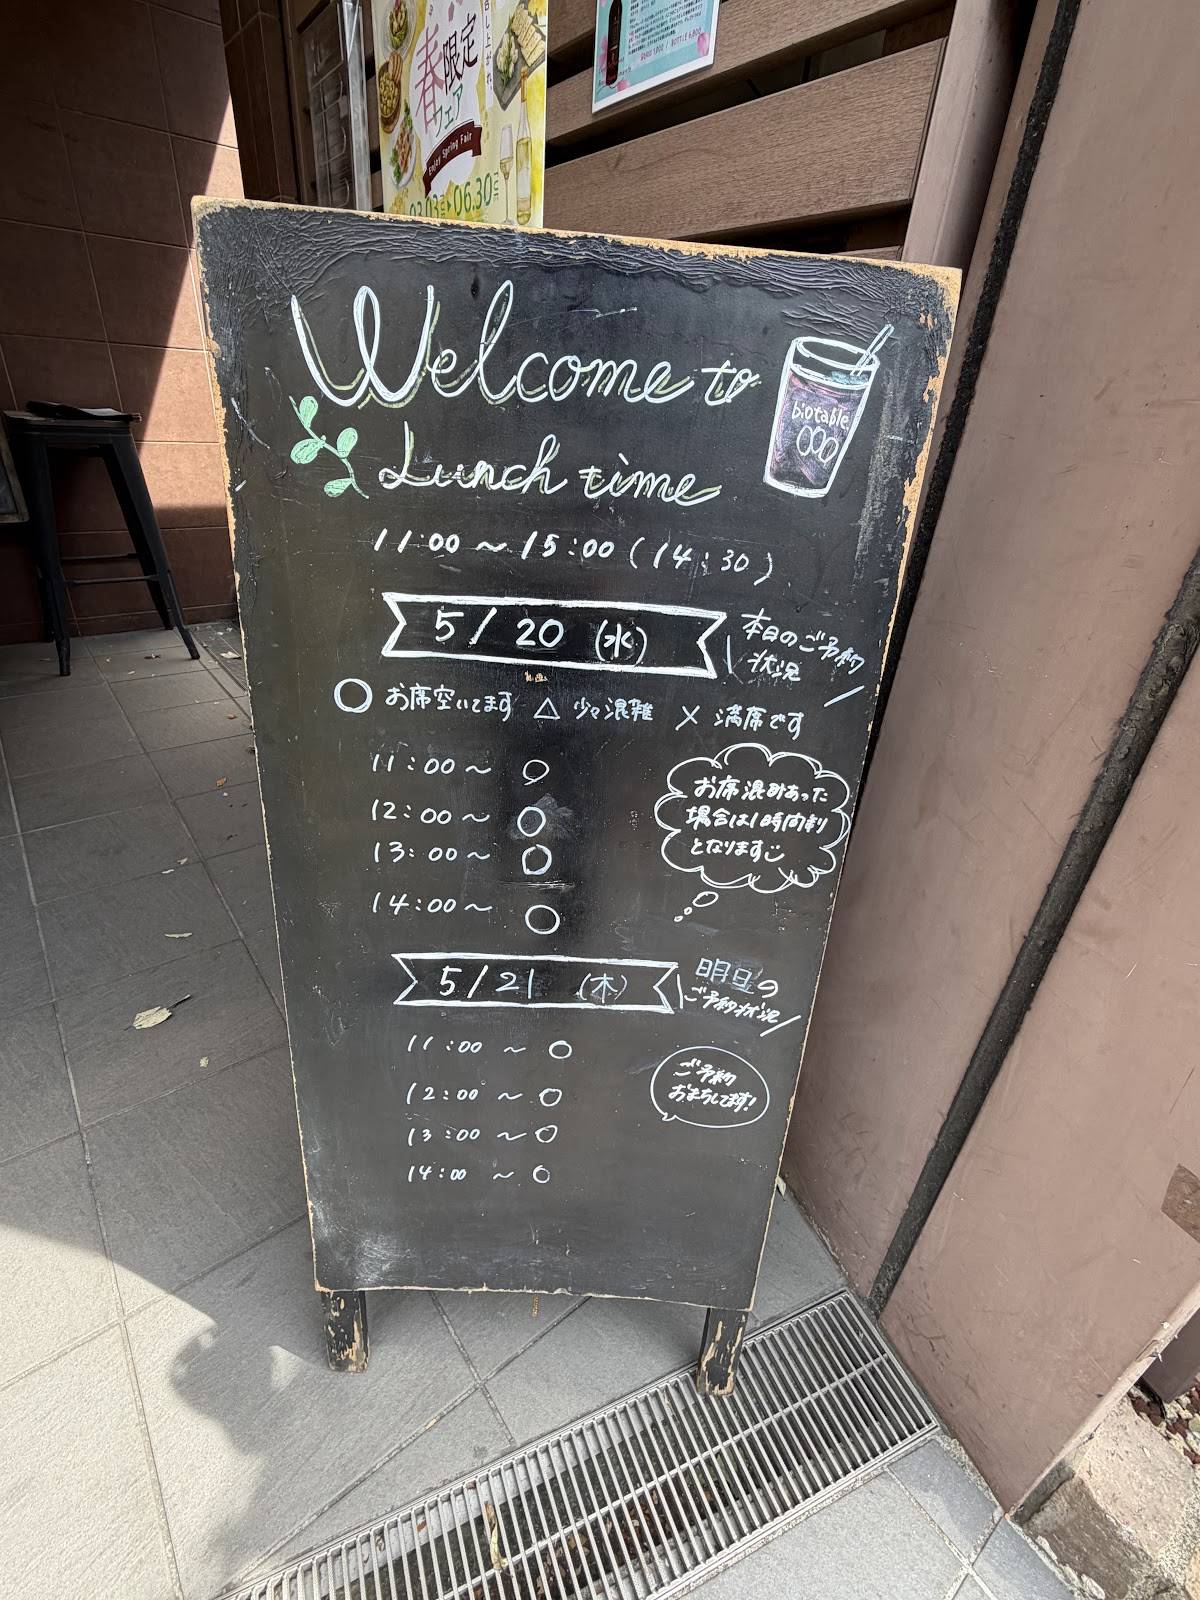 召し上がれ
春限定
フェア
Enjoy Spring Fair
03.03 06.30
/ BOTTLE 6,800
Welcome to
Lunch time
biotable
11:00 ～ 15:00 (14:30)
5/20 (水)
本日のご予約
状況
○ お席空いてます △ 少々混雑 × 満席です
11:00～ ○
12:00～ ○
13:00～ ○
14:00～ ○
お席混みあった
場合は1時間制
となります
5/21 (木)
明日の
ご予約状況
11:00 ～ ○
12:00 ～ ○
13:00 ～ ○
14:00 ～ ○
ご予約
おまちしてます!